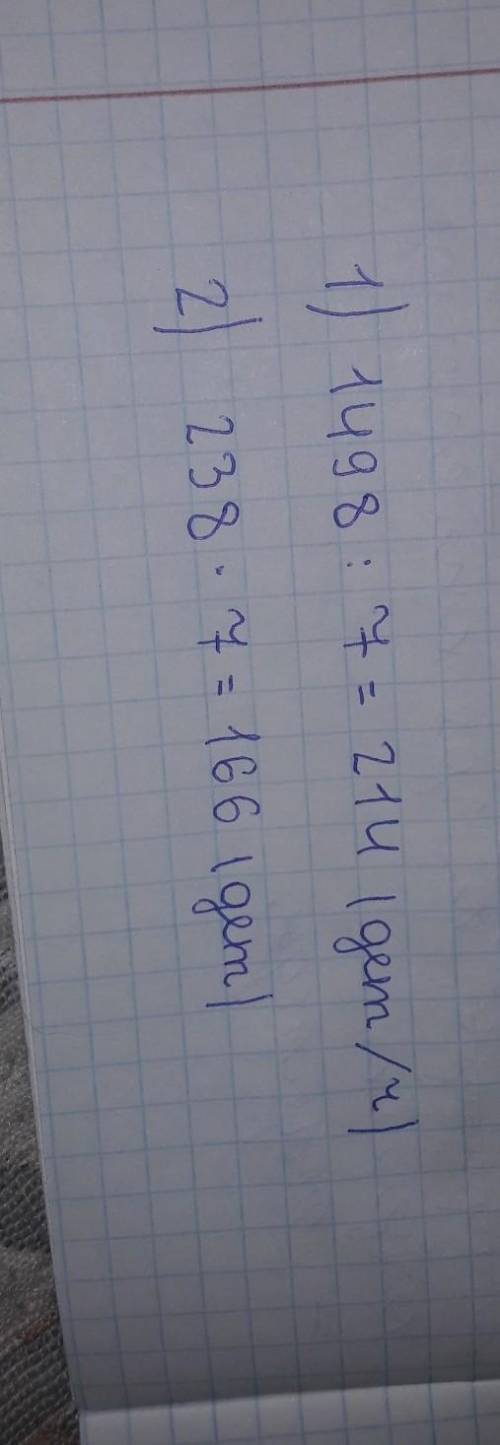 1) 1498 : 7 = 214 (дет/ч)
2) 238 · 7 = 166 (дет)